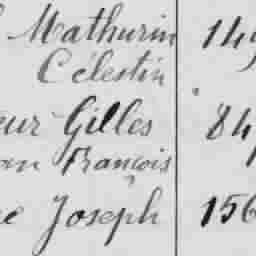 Mathurin 149
Célestin
eur Gilles 84
an François
e Joseph 156